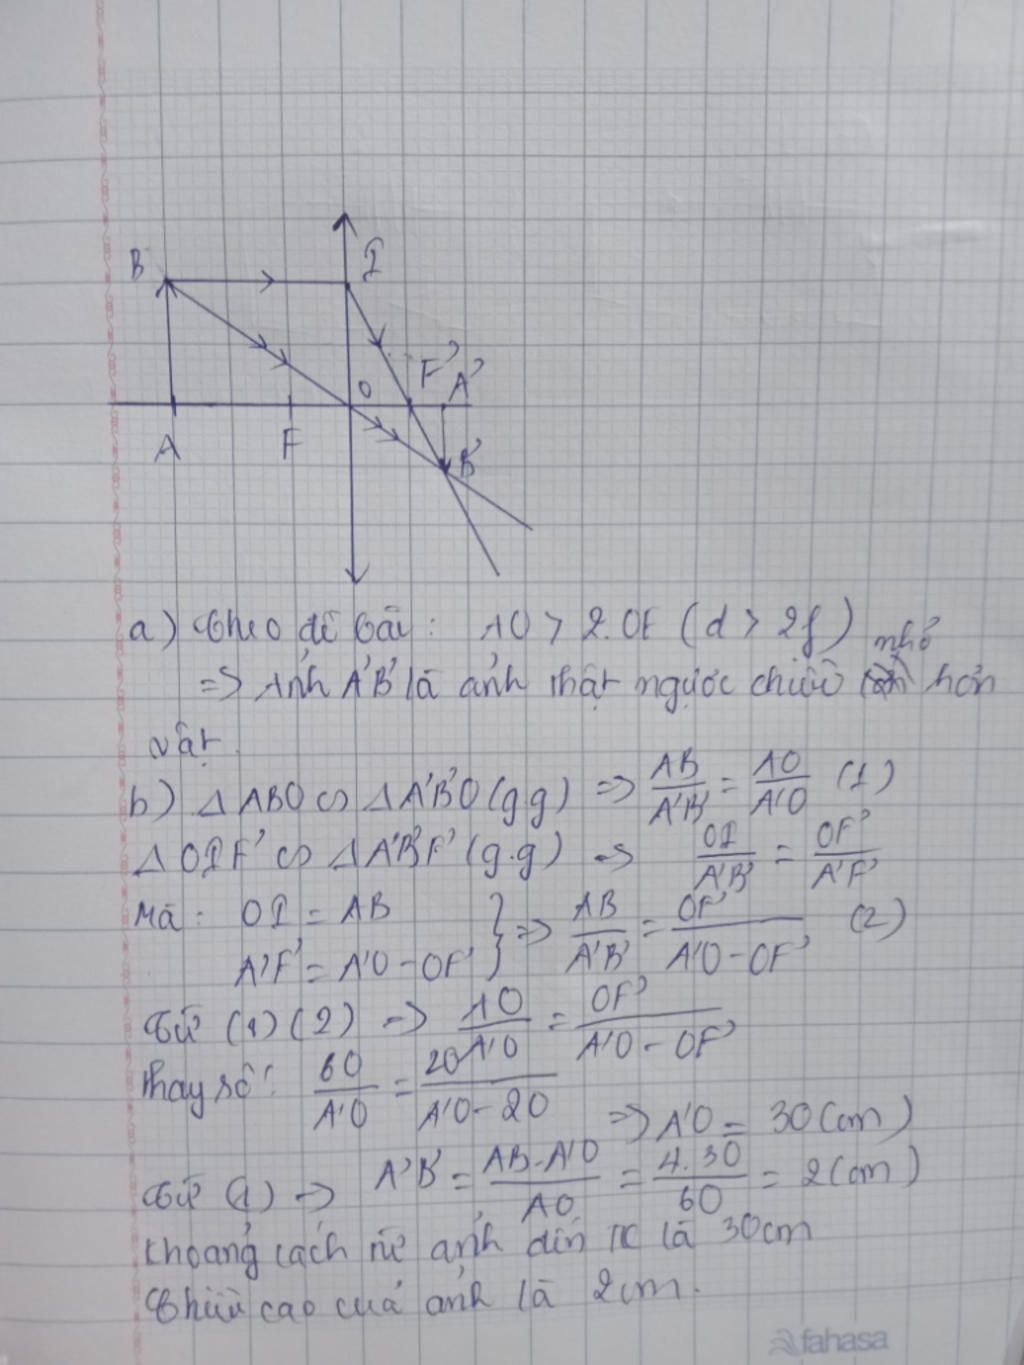 B
I
F'
A'
O
A
F
B'
a) Theo đề bài: AO > 2.OF (d > 2f)
nhỏ
=> Ảnh A'B' là ảnh thật ngược chiều hơn
vật.
b) Δ ABO ∽ Δ A'B'O (g g) => AB/A'B' = AO/A'O (1)
Δ OIF' ∽ Δ A'B'F' (g.g) => OI/A'B' = OF'/A'F'
Mà: OI = AB
A'F' = A'O - OF' } => AB/A'B' = OF'/A'O - OF' (2)
Từ (1) (2) => AO/A'O = OF'/A'O - OF'
Thay số: 60/A'O = 20/A'O - 20
=> A'O = 30 (cm)
Từ (1) => A'B' = AB.A'O/AO = 4.30/60 = 2 (cm)
Khoảng cách từ ảnh đến TK là 30cm
Chiều cao của ảnh là 2cm.
fahasa